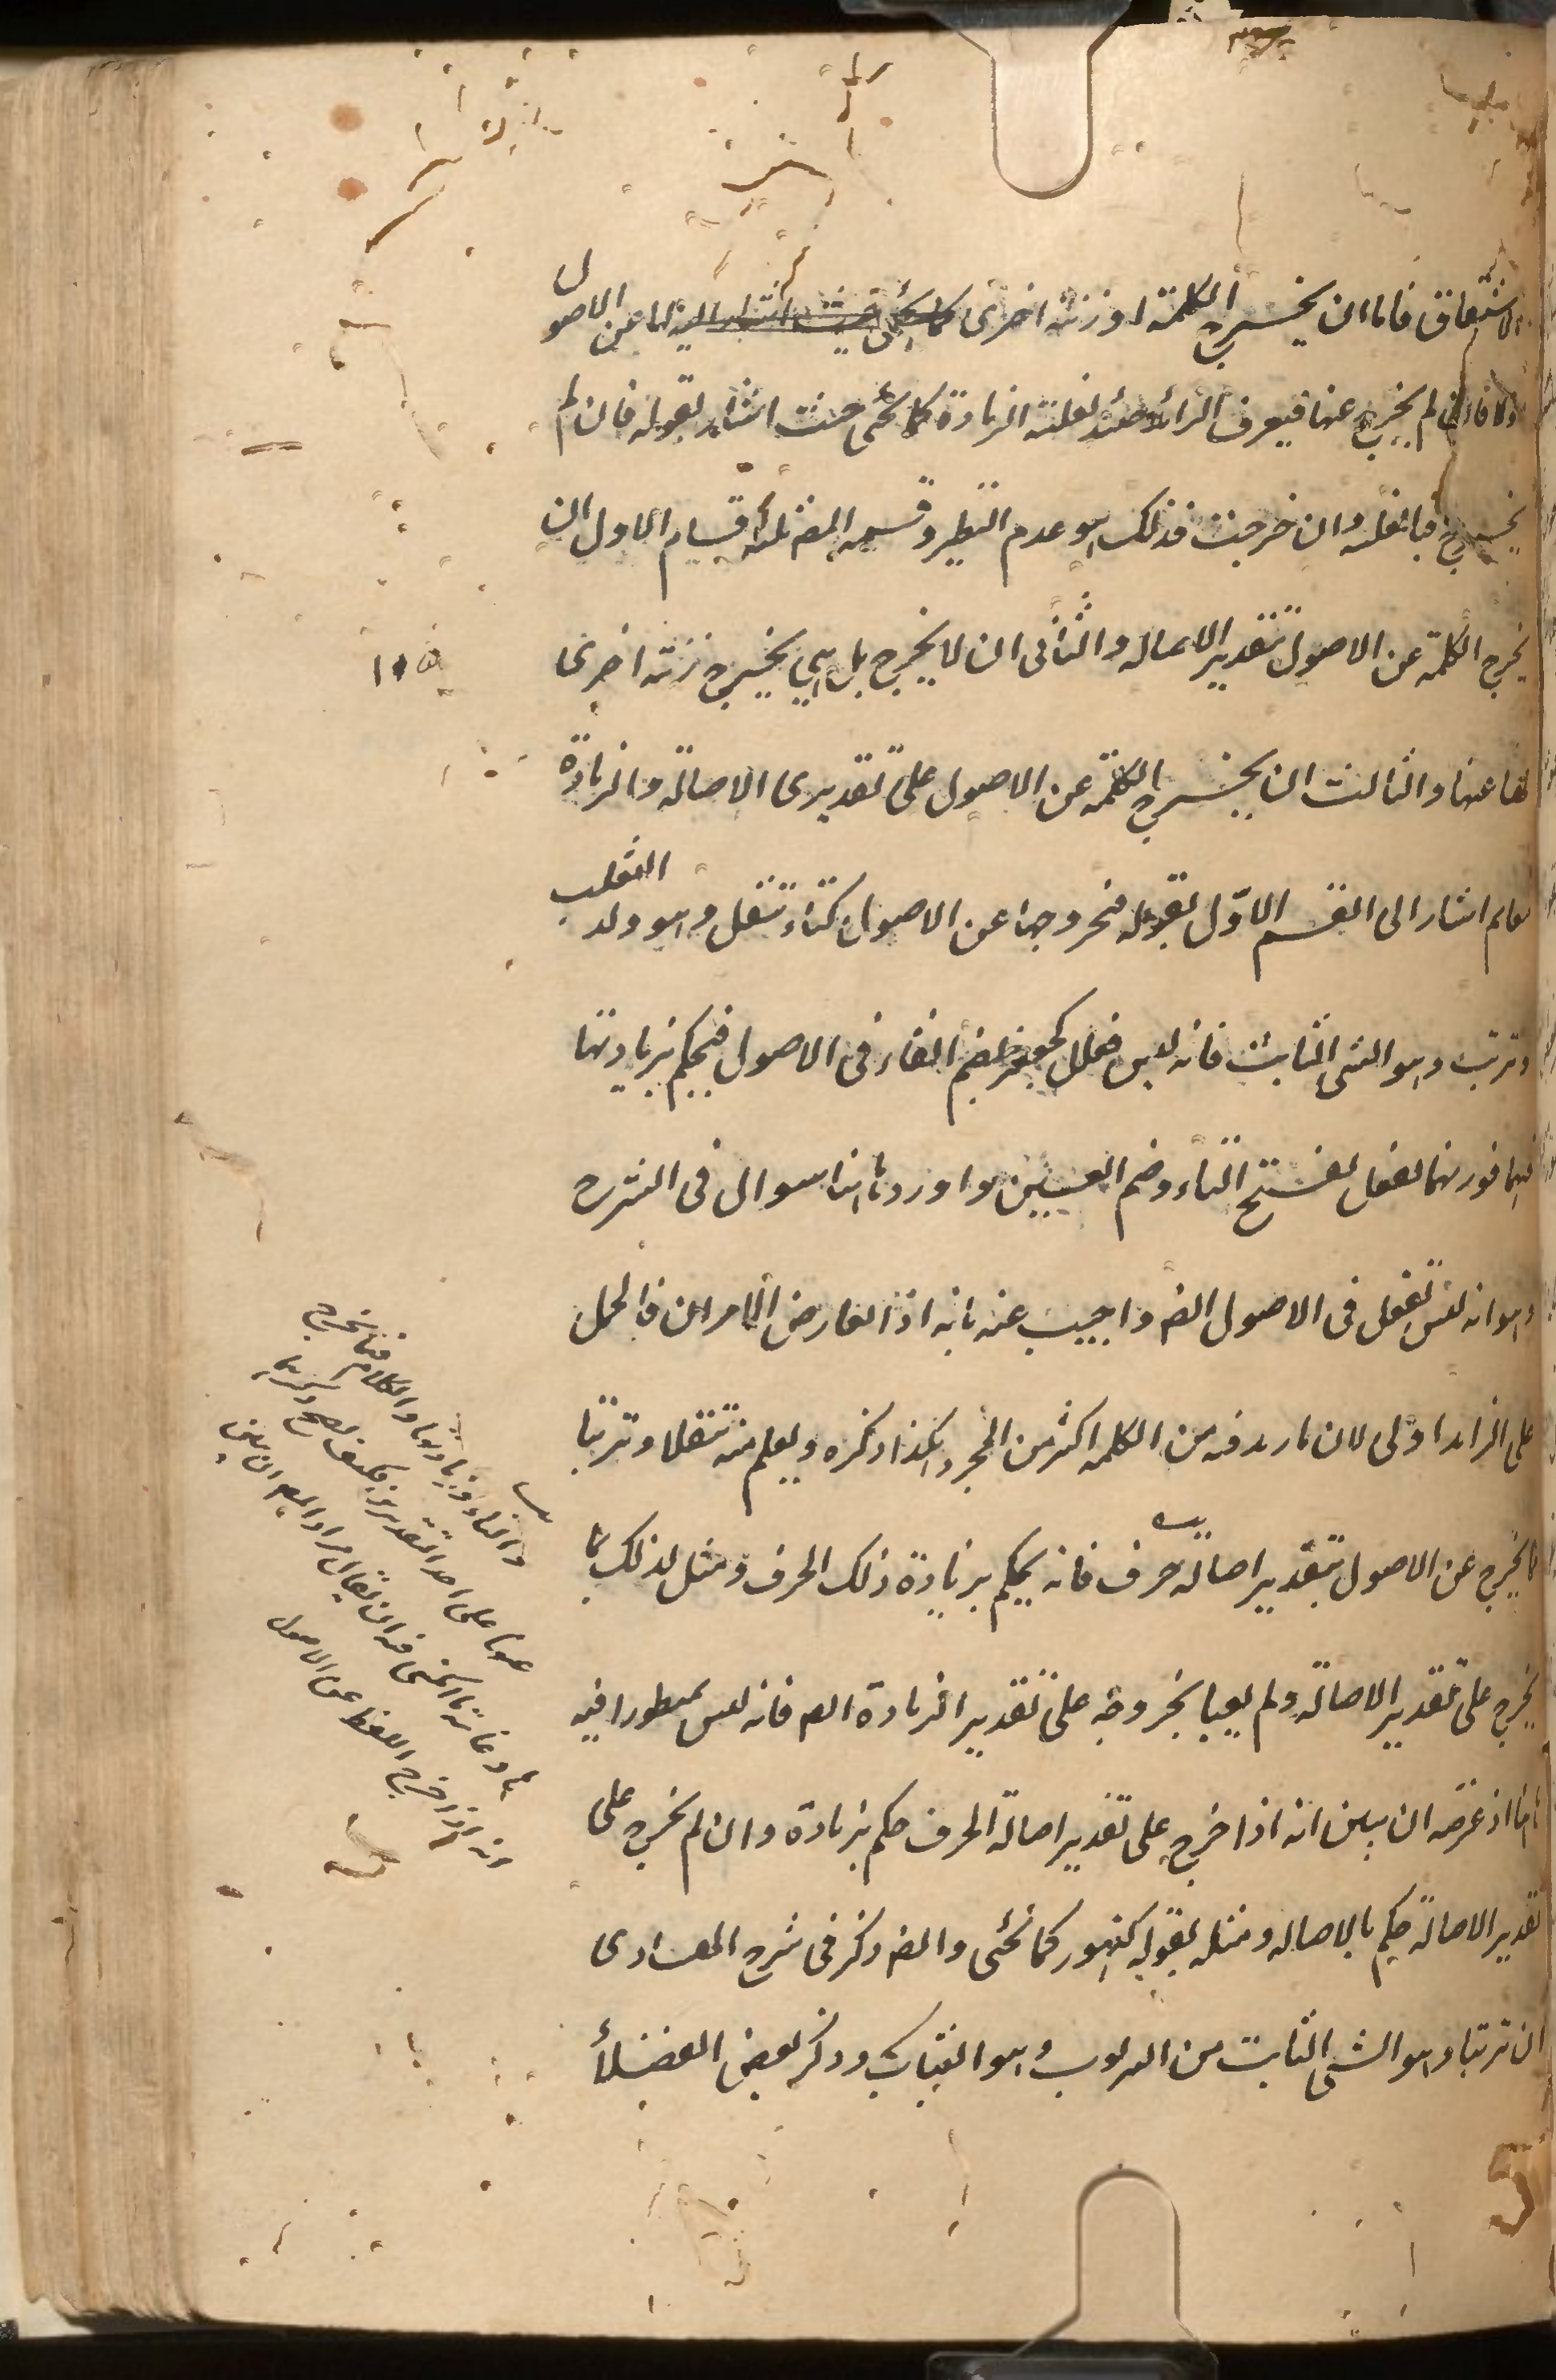 الاشتقاق فاما ان يخرج الكلمة او زنة اخرى كما يجئ حيث اشار اليه لها عن الاصول
اولا فان لم يخرج عنها فيعرف الزائد حينئذ بغلبة الزيادة كما يجئ حيث اشار بقوله فان لم
يخرج فبالغلبة وان خرجت فذلك هو عدم النظير وقسمه المص ثلثة اقسام الاول ان
يخرج الكلمة عن الاصول بتقدير الاصالة والثانى ان لا يخرج بل هي يخرج زنة اخرى
لها عنها والثالث ان يخرج الكلمة عن الاصول على تقديرى الاصالة والزيادة
معا ثم اشار الى القسم الاوّل بقوله فبخروجها عن الاصول كتاء تتفل وهو ولد الثعلب
وترتب وهو الشئ الثابت فانه ليس فعلل كجعفر بضم الفاء فى الاصول فيحكم بزيادتها
فيهما فوزنهما تفعل بفتح التاء وضم العين واورد هاهنا سوال فى الشرح
وهو انه ليس تفعل فى الاصول ايضا واجيب عنه بانه اذا تعارض الامران فالحمل
على الزايد اولى لان ما زيد فيه من الكلمة اكثر من المجرد هكذا ذكره ويعلم منه تتفلا وترتبا
مما يخرج عن الاصول بتقدير اصالة حرف فانه يحكم بزيادة ذلك الحرف ومثل لذلك بما
يخرج على تقدير الاصالة ولم يعبا بخروجه على تقدير الزيادة ايضا فانه ليس بمنظور فيه
هاهنا اذ غرضه ان يبين انه اذا خرج على تقدير اصالة الحرف حكم بزيادة وان لم يخرج على
تقدير الاصالة حكم بالاصالة ومثله بقوله كنهور كما يجئ والمص ذكر فى شرح الهادى
ان ترتبا وهو الشئ الثابت من الرتوب وهو الثبات وذكر بعض الفضلأ
١١٥
والتاء وزيادتها والكلام فيما يخرج
عنها على احد التقديرين فكيف يصح ذكرها
وغاية ما يمكن فيه ان يقال مراد المص ان يبين
انه اذا خرج اللفظ عن الاصول